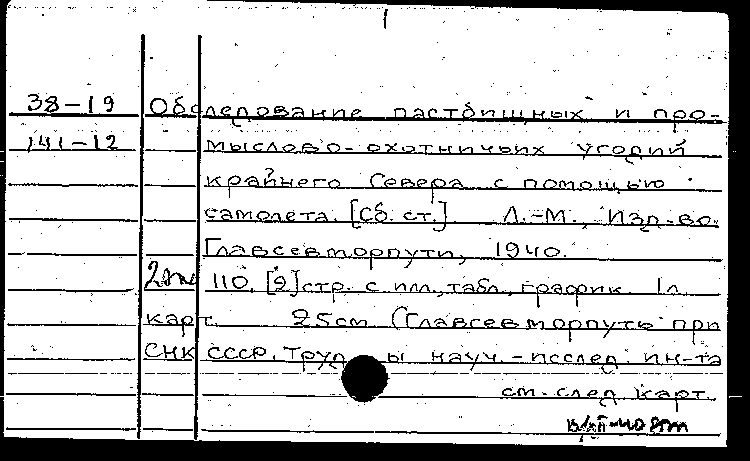 38-19 Обследование пастбищных и про-
141-12 мыслово-охотничьих угодий
крайнего Севера с помощью
самолета. [Сб. ст.]. Л.-М., Изд-во
Главсевморпути, 1940.
110, [2] стр. с илл., табл., график. 1 л.
карт. 25 см (Главсевморпуть при
СНК СССР. Труды науч.-исслед. ин-та
см. след. карт.